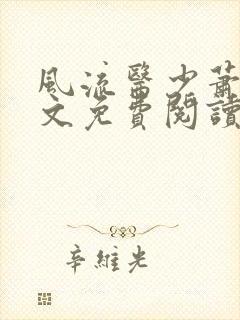 風流醫少蕭
文免費閱讀
辛維光